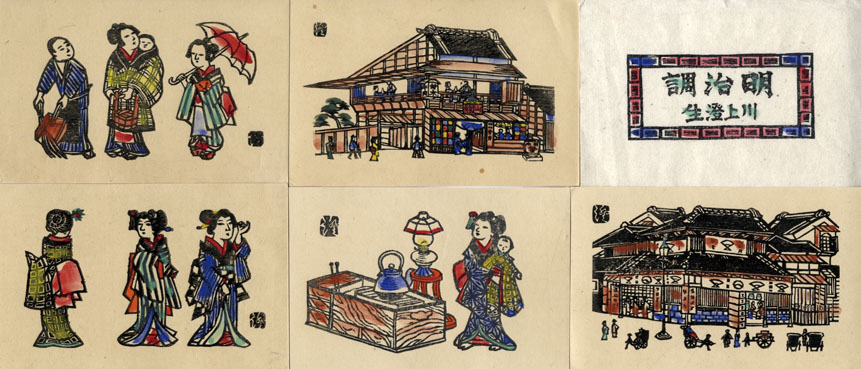 明治調
川上澄生